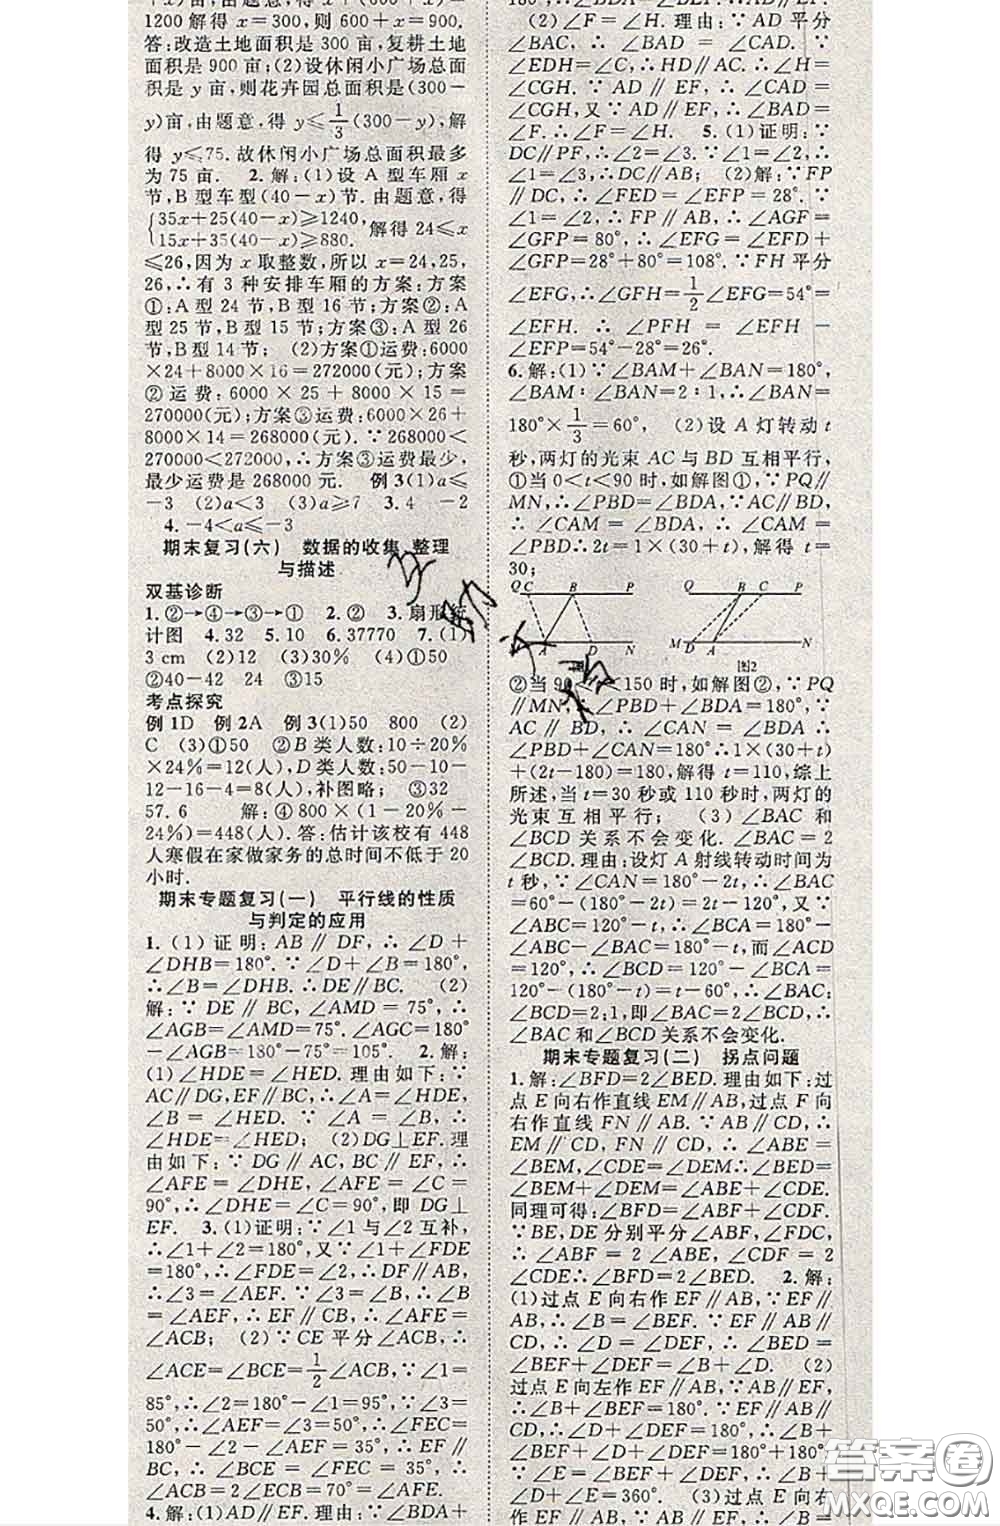 +x)亩,由题意,得 x+(300+x)=
1200解得 x=300,则 600+x=900.
答:改造土地面积是 300 亩,复耕土地
面积是 900 亩;(2)设休闲小广场总面
积是 y 亩,则花卉园总面积是(300-
y)亩,由题意,得 y≤1/3(300-y),解
得 y≤75.故休闲小广场总面积最多
为 75 亩. 2.解:(1)设 A 型车厢 x
节,B 型车型(40-x)节.由题意,得
{35x+25(40-x)≥1240,
15x+35(40-x)≥880. 解得 24≤x
≤26,因为 x 取整数,所以 x=24,25,
26,∴有 3 种安排车厢的方案:方案
①:A 型 24 节,B 型 16 节;方案②:A
型 25 节,B 型 15 节;方案③:A 型 26
节,B 型 14 节; (2)方案①运费:6000
×24+8000×16=272000(元);方案
②运费:6000×25+8000×15=
270000(元);方案③运费:6000×26+
8000×14=268000(元).∵268000<
270000<272000,∴方案③运费最少,
最少运费是 268000 元. 例 3(1)a≤
-3 (2)a<3 (3)a≥7 3.4 -2
4.-4<a≤-3
期末复习(六) 数据的收集、整理
与描述
双基诊断
1.②→④→③→① 2.② 3.扇形统
计图 4.32 5.10 6.37770 7.(1)
3 cm (2)12 (3)30% (4)①50
②40-42 24 ③15
考点探究
例 1D 例 2A 例 3(1)50 800 (2)
C (3)①50 ②B 类人数:10÷20%
×24%=12(人),D 类人数:50-10-
12-16-4=8(人),补图略; ③32
57.6 解:④800×(1-20%-
24%)=448(人).答:估计该校有 448
人寒假在家做家务的总时间不低于 20
小时.
期末专题复习(一) 平行线的性质
与判定的应用
1.(1)证明:AB∥DF,∴∠D+
∠DHB=180°.∵∠D+∠B=180°,
∴∠B=∠DHB.∴DE∥BC. (2)
解:∵DE∥BC,∠AMD=75°,∴
∠AGB=∠AMD=75°.∠AGC=180°
-∠AGB=180°-75°=105°. 2.解:
(1)∠HDE=∠HED.理由如下:∵
AC∥DG,EF∥BC,∴∠A=∠HDE,
∠B=∠HED.∵∠A=∠B,∴
∠HDE=∠HED; (2)DG⊥EF.理
由如下:∵DG∥AC,BC∥EF,∴
∠AFE=∠DHE,∠AFE=∠C=
90°,∴∠DHE=∠C=90°,即 DG⊥
EF. 3.(1)证明:∵∠1 与∠2 互补,
∴∠1+∠2=180°,又∵∠1+∠FDE
=180°,∴∠FDE=∠2,∴DF∥AB,
∴∠3=∠AEF.∵∠3=∠B,∴∠B
=∠AEF,∴EF∥CB,∴∠AFE=
∠ACB; (2)∵CE 平分∠ACB,∴
∠ACE=∠BCE=1/2∠ACB,∵∠1=
85°,∴∠2=180°-∠1=95°,∵∠3=
50°,∴∠AEF=∠3=50°,∴∠FEC=
180°-∠2-∠AEF=35°,∴EF∥
BC,∴∠BCE=∠FEC=35°,∴
∠ACB=2∠ECB=70°=∠AFE.
4.解:(1)AD∥EF.理由:∵∠BDA+
180°,∴∠BDA=∠DEF,∴AD∥EF.
(2)∠F=∠H.理由:∵AD 平分
∠BAC,∴∠BAD=∠CAD.∵
∠EDH=∠C,∴HD∥AC.∴∠H=
∠CGH.∵AD∥EF,∴∠CAD=
∠CGH,又∵AD∥EF,∴∠BAD=
∠F.∴∠F=∠H. 5.(1)证明:∵
DC∥PF,∴∠2=∠3.∵∠1=∠2,
∴∠1=∠3,∴DC∥AB; (2)解:∵FP
∥DC,∴∠FED=∠EFP=28°.∵
∠1=∠2,∴FP∥AB,∴∠AGF=
∠GFP=80°,∴∠EFG=∠EFD+
∠GFP=28°+80°=108°.∵FH 平分
∠EFG,∴∠GFH=1/2∠EFG=54°=
∠EFH.∴∠PFH=∠EFH-
∠EFP=54°-28°=26°.
6.解:(1)∵∠BAM+∠BAN=180°,
∠BAM:∠BAN=2:1,∴∠BAN=
180°×1/3=60°, (2)设 A 灯转动 t
秒,两灯的光束 AC 与 BD 互相平行,
①当 0<t<90 时,如解图①,∵PQ∥
MN,∴∠PBD=∠BDA,∵AC∥BD,
∴∠CAM=∠BDA,∴∠CAM=
∠PBD∴2t=1×(30+t),解得 t=
30;
Q C B P Q B C P
A D N M D A N
图2
②当 90<t<150 时,如解图②,∵PQ
∥MN,∴∠PBD+∠BDA=180°,∵
AC∥BD,∴∠CAN=∠BDA∴
∠PBD+∠CAN=180°∴1×(30+t)
+(2t-180)=180,解得 t=110,综上
所述,当 t=30 秒或 110 秒时,两灯的
光束互相平行; (3)∠BAC 和
∠BCD 关系不会变化.∠BAC=2
∠BCD.理由:设灯 A 射线转动时间为
t 秒,∵∠CAN=180°-2t,∴∠BAC
=60°-(180°-2t)=2t-120°,又∵
∠ABC=120°-t,∴∠BCA=180°-
∠ABC-∠BAC=180°-t,而∠ACD
=120°,∴∠BCD=120°-∠BCA=
120°-(180°-t)=t-60°,∴∠BAC:
∠BCD=2:1,即∠BAC=2∠BCD,∴
∠BAC 和∠BCD 关系不会变化.
期末专题复习(二) 拐点问题
1.解:∠BFD=2∠BED.理由如下:过
点 E 向右作直线 EM∥AB,过点 F 向
右作直线 FN∥AB.∵AB∥CD,∴
EM∥CD,FN∥CD,∴∠ABE=
∠BEM,∠CDE=∠DEM∴∠BED=
∠BEM+∠DEM=∠ABE+∠CDE.
同理可得:∠BFD=∠ABF+∠CDF.
∵BE,DE 分别平分∠ABF,∠FDC,
∴∠ABF=2∠ABE,∠CDF=2
∠CDE∴∠BFD=2∠BED. 2.解:
(1)过点 E 向右作 EF∥AB,∵EF∥
AB,∴∠B=∠BEF,∵AB∥
CD,∴∠D=∠DEF,∴∠BED=
∠BEF+∠DEF=∠B+∠D. (2)
过点 E 向左作 EF∥AB,∵AB∥CD,
∴EF∥CD,∴∠B+
∠BEF+∠D+∠DEF=180°+180°
∵∠E=∠BEF+∠DEF,∴∠B+
∠D+∠E=360°. (3)过点 E 向
答案圈
MXQE.COM